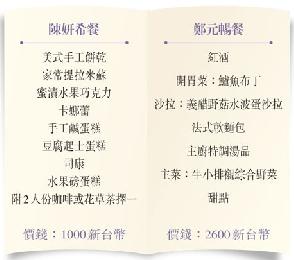 陳妍希餐
美式手工餅乾
家常提拉米蘇
蜜漬水果巧克力
卡娜蕾
手工鹹蛋糕
豆腐起士蛋糕
司康
水果磅蛋糕
附2人份咖啡或花草茶擇一
價錢：1000新台幣
鄭元暢餐
紅酒
開胃菜：鱸魚布丁
沙拉：義醋野菇水波蛋沙拉
法式軟麵包
主廚特調湯品
主菜：牛小排龍綜合野菜
甜點
價錢：2600新台幣